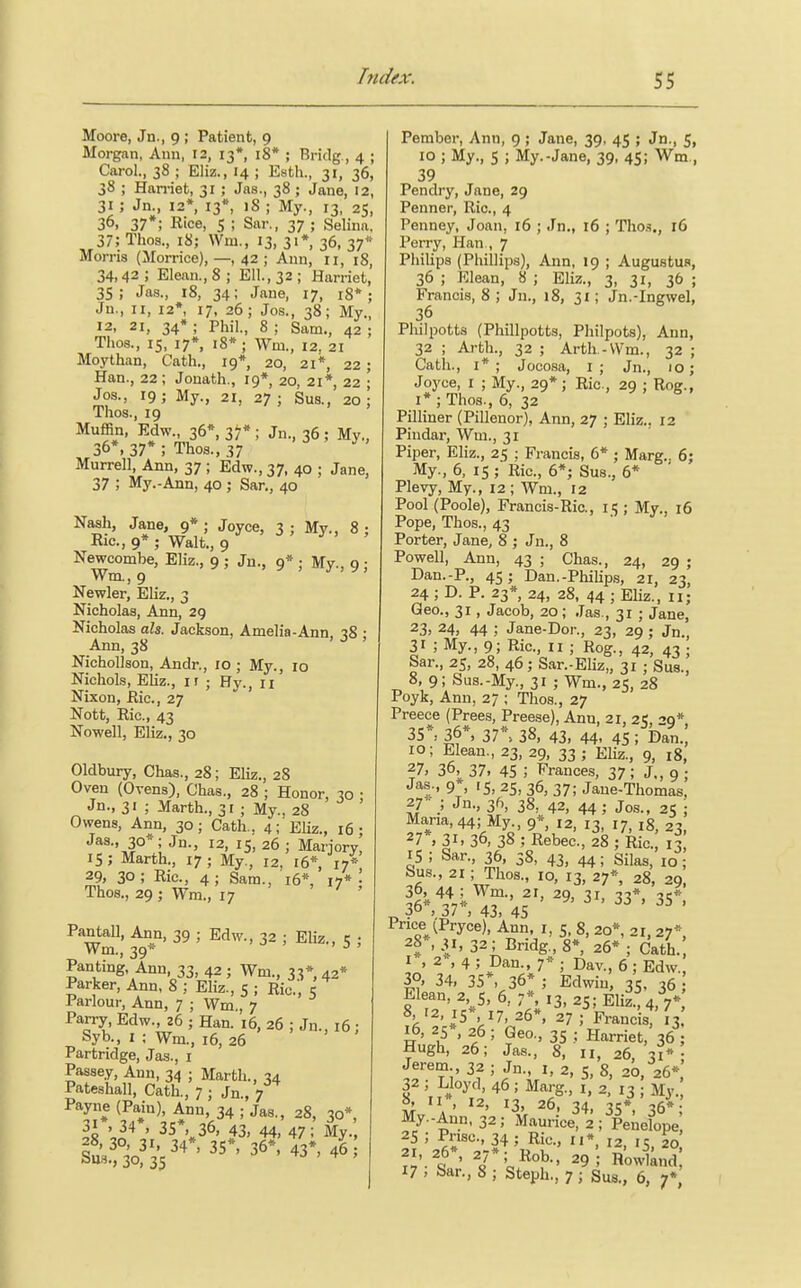 Index.
55
Moore, Jn., 9 ; Patient, 9
Morgan, Ann, 12, 13*, 18* ; Bridg., 4 ;
Carol., 38 ; Eliz., 14 ; Esth., 31, 36,
38 ; Harriet, 31 ; Jas., 38 ; Jane, 12,
31 ; Jn., 12*, 13*, 18 ; My., 13, 25,
36, 37*; Rice, 5 ; Sar., 37 ; Selina,
37; Thos., 18; Wm., 13, 31*, 36, 37*
Morris (Morrice), —, 42 ; Ann, 11, 18,
34, 42 ; Elean., 8 ; Ell., 32 ; Harriet,
35 ; Jas., 18, 34; Jane, 17, 18* ;
Jn., 11, 12*, 17, 26 ; Jos., 38; My.,
12, 21, 34* ; Phil., 8 ; Sam., 42 ;
Thos., 15, 17*, 18* ; Wm., 12, 21
Moythan, Cath., 19*, 20, 21*, 22 ;
Han., 22 ; Jonath., 19*, 20, 21*, 22 ;
Jos., 19 ; My., 21, 27 ; Sus., 20 ;
Thos., 19
Muffin, Edw., 36*, 37*; Jn., 36 ; My.,
36*, 37* ; Thos., 37
Murrell, Ann, 37 ; Edw., 37, 40 ; Jane,
37 ; My.-Ann, 40 ; Sar., 40
Nash, Jane, 9* ; Joyce, 3 ; My., 8 ;
Ric., 9* ; Walt., 9
Newcombe, Eliz., 9 ; Jn., 9* ; My., 9 ;
Wm., 9
Newler, Eliz., 3
Nicholas, Ann, 29
Nicholas als. Jackson, Amelia-Ann, 38 ;
Ann, 38
Nichollson, Andr., 10 ; My., 10
Nichols, Eliz., 11 ; Hy., 11
Nixon, Ric., 27
Nott, Ric., 43
Nowell, Eliz., 30
Oldbury, Chas., 28; Eliz., 28
Oven (Ovens), Chas., 28 ; Honor, 30 ;
Jn., 31 ; Marth., 31 ; My., 28
Owens, Ann, 30 ; Cath., 4; Eliz., 16 ;
Jas., 30* ; Jn., 12, 15, 26 ; Marjory,
15 ; Marth., 17 ; My., 12, 16*, 17*,
29, 30 ; Ric., 4 ; Sam., 16*, 17* ;
Thos., 29 ; Wm., 17
Pantall, Ann, 39 ; Edw., 32 ; Eliz., 5 ;
Wm., 39*
Panting, Ann, 33, 42 ; Wm., 33*, 42*
Parker, Ann, 8 ; Eliz., 5 ; Ric., 5
Parlour, Ann, 7 ; Wm., 7
Parry, Edw., 26 ; Han. 16, 26 ; Jn., 16 ;
Syb., 1 ; Wm., 16, 26
Partridge, Jas., 1
Passey, Ann, 34 ; Marth., 34
Pateshall, Cath., 7 ; Jn., 7
Payne (Pain), Ann, 34 ; Jas., 28, 30*,
31*, 34*, 35*, 36, 43, 44, 47 ; My.,
28, 30, 31, 34*, 35*, 36*, 43*, 46 ;
Sus., 30, 35
Pember, Ann, 9 ; Jane, 39, 45 ; Jn., 5,
10 ; My., 5 ; My.-Jane, 39, 45; Wm.,
39
Pendry, Jane, 29
Penner, Ric., 4
Penney, Joan, 16 ; Jn., 16 ; Thos., 16
Perry, Han , 7
Philips (Phillips), Ann, 19 ; Augustus,
36 ; Elean, 8 ; Eliz., 3, 31, 36 ;
Francis, 8 ; Jn., 18, 31 ; Jn.-Ingwel,
36
Philpotts (Phillpotts, Philpots), Ann,
32 ; Arth., 32 ; Arth.-Wm., 32 ;
Cath., 1* ; Jocosa, 1 ; Jn., 10 ;
Joyce, 1 ; My., 29* ; Ric., 29 ; Rog.,
1* ; Thos., 6, 32
Pilliner (Pillenor), Ann, 27 ; Eliz., 12
Pindar, Wm., 31
Piper, Eliz., 25 ; Francis, 6* ; Marg., 6;
My., 6, 15 ; Ric., 6*; Sus., 6*
Plevy, My., 12 ; Wm., 12
Pool (Poole), Francis-Ric., 15 ; My., 16
Pope, Thos., 43
Porter, Jane, 8 ; Jn., 8
Powell, Ann, 43 ; Chas., 24, 29 ;
Dan.-P., 45 ; Dan.-Philips, 21, 23,
24 ; D. P. 23*, 24, 28, 44 ; Eliz., 11;
Geo., 31, Jacob, 20 ; Jas., 31 ; Jane,
23, 24, 44 ; Jane-Dor., 23, 29 ; Jn.,
31 ; My., 9; Ric., 11 ; Rog., 42, 43 ;
Sar., 25, 28, 46 ; Sar.-Eliz,, 31 ; Sus.,
8, 9; Sus.-My., 31 ; Wm., 25, 28
Poyk, Ann, 27 ; Thos., 27
Preece (Prees, Preese), Ann, 21, 25, 29*,
35*, 36*, 37*, 38, 43, 44, 45 ; Dan.,
10; Elean., 23, 29, 33 ; Eliz., 9, 18,
27, 36, 37, 45 ; Frances, 37 ; J., 9 ;
Jas., 9*, 15, 25, 36, 37; Jane-Thomas,
27* ; Jn., 36, 38, 42, 44 ; Jos., 25 ;
Maria, 44; My., 9*, 12, 13, 17, 18, 23,
27*, 31, 36, 38 ; Rebec., 28 ; Ric., 13,
15 ; Sar., 36, 38, 43, 44; Silas, 10 ;
Sus., 21 ; Thos., 10, 13, 27*, 28, 29,
36, 44 ; Wm., 21, 29, 31, 33*, 35*,
36*, 37*, 43, 45
Price (Pryce), Ann, 1, 5, 8, 20*, 21, 27*,
28*, 31, 32 ; Bridg., 8*, 26* ; Cath.,
1*, 2*, 4 ; Dan., 7* ; Dav., 6 ; Edw.,
30, 34, 35*, 36* ; Edwin, 35, 36 ;
Elean, 2, 5, 6, 7*, 13, 25; Eliz., 4, 7*,
8, 12, 15*, 17, 26*, 27 ; Francis, 13,
16, 25*, 26 ; Geo., 35 ; Harriet, 36 ;
Hugh, 26; Jas., 8, 11, 26, 31* ;
Jerem., 32 ; Jn., 1, 2, 5, 8, 20, 26*,
32 ; Lloyd, 46 ; Marg., 1, 2, 13 ; My.,
8, 11*, 12, 13, 26, 34, 35*, 36* ;
My.-Ann, 32 ; Maurice, 2 ; Penelope,
25 ; Prisc., 34 ; Ric., 11*, 12, 15, 20,
21, 26*, 27* ; Rob., 29 ; Rowland,
17 ; Sar., 8 ; Steph., 7 ; Sus., 6, 7*,